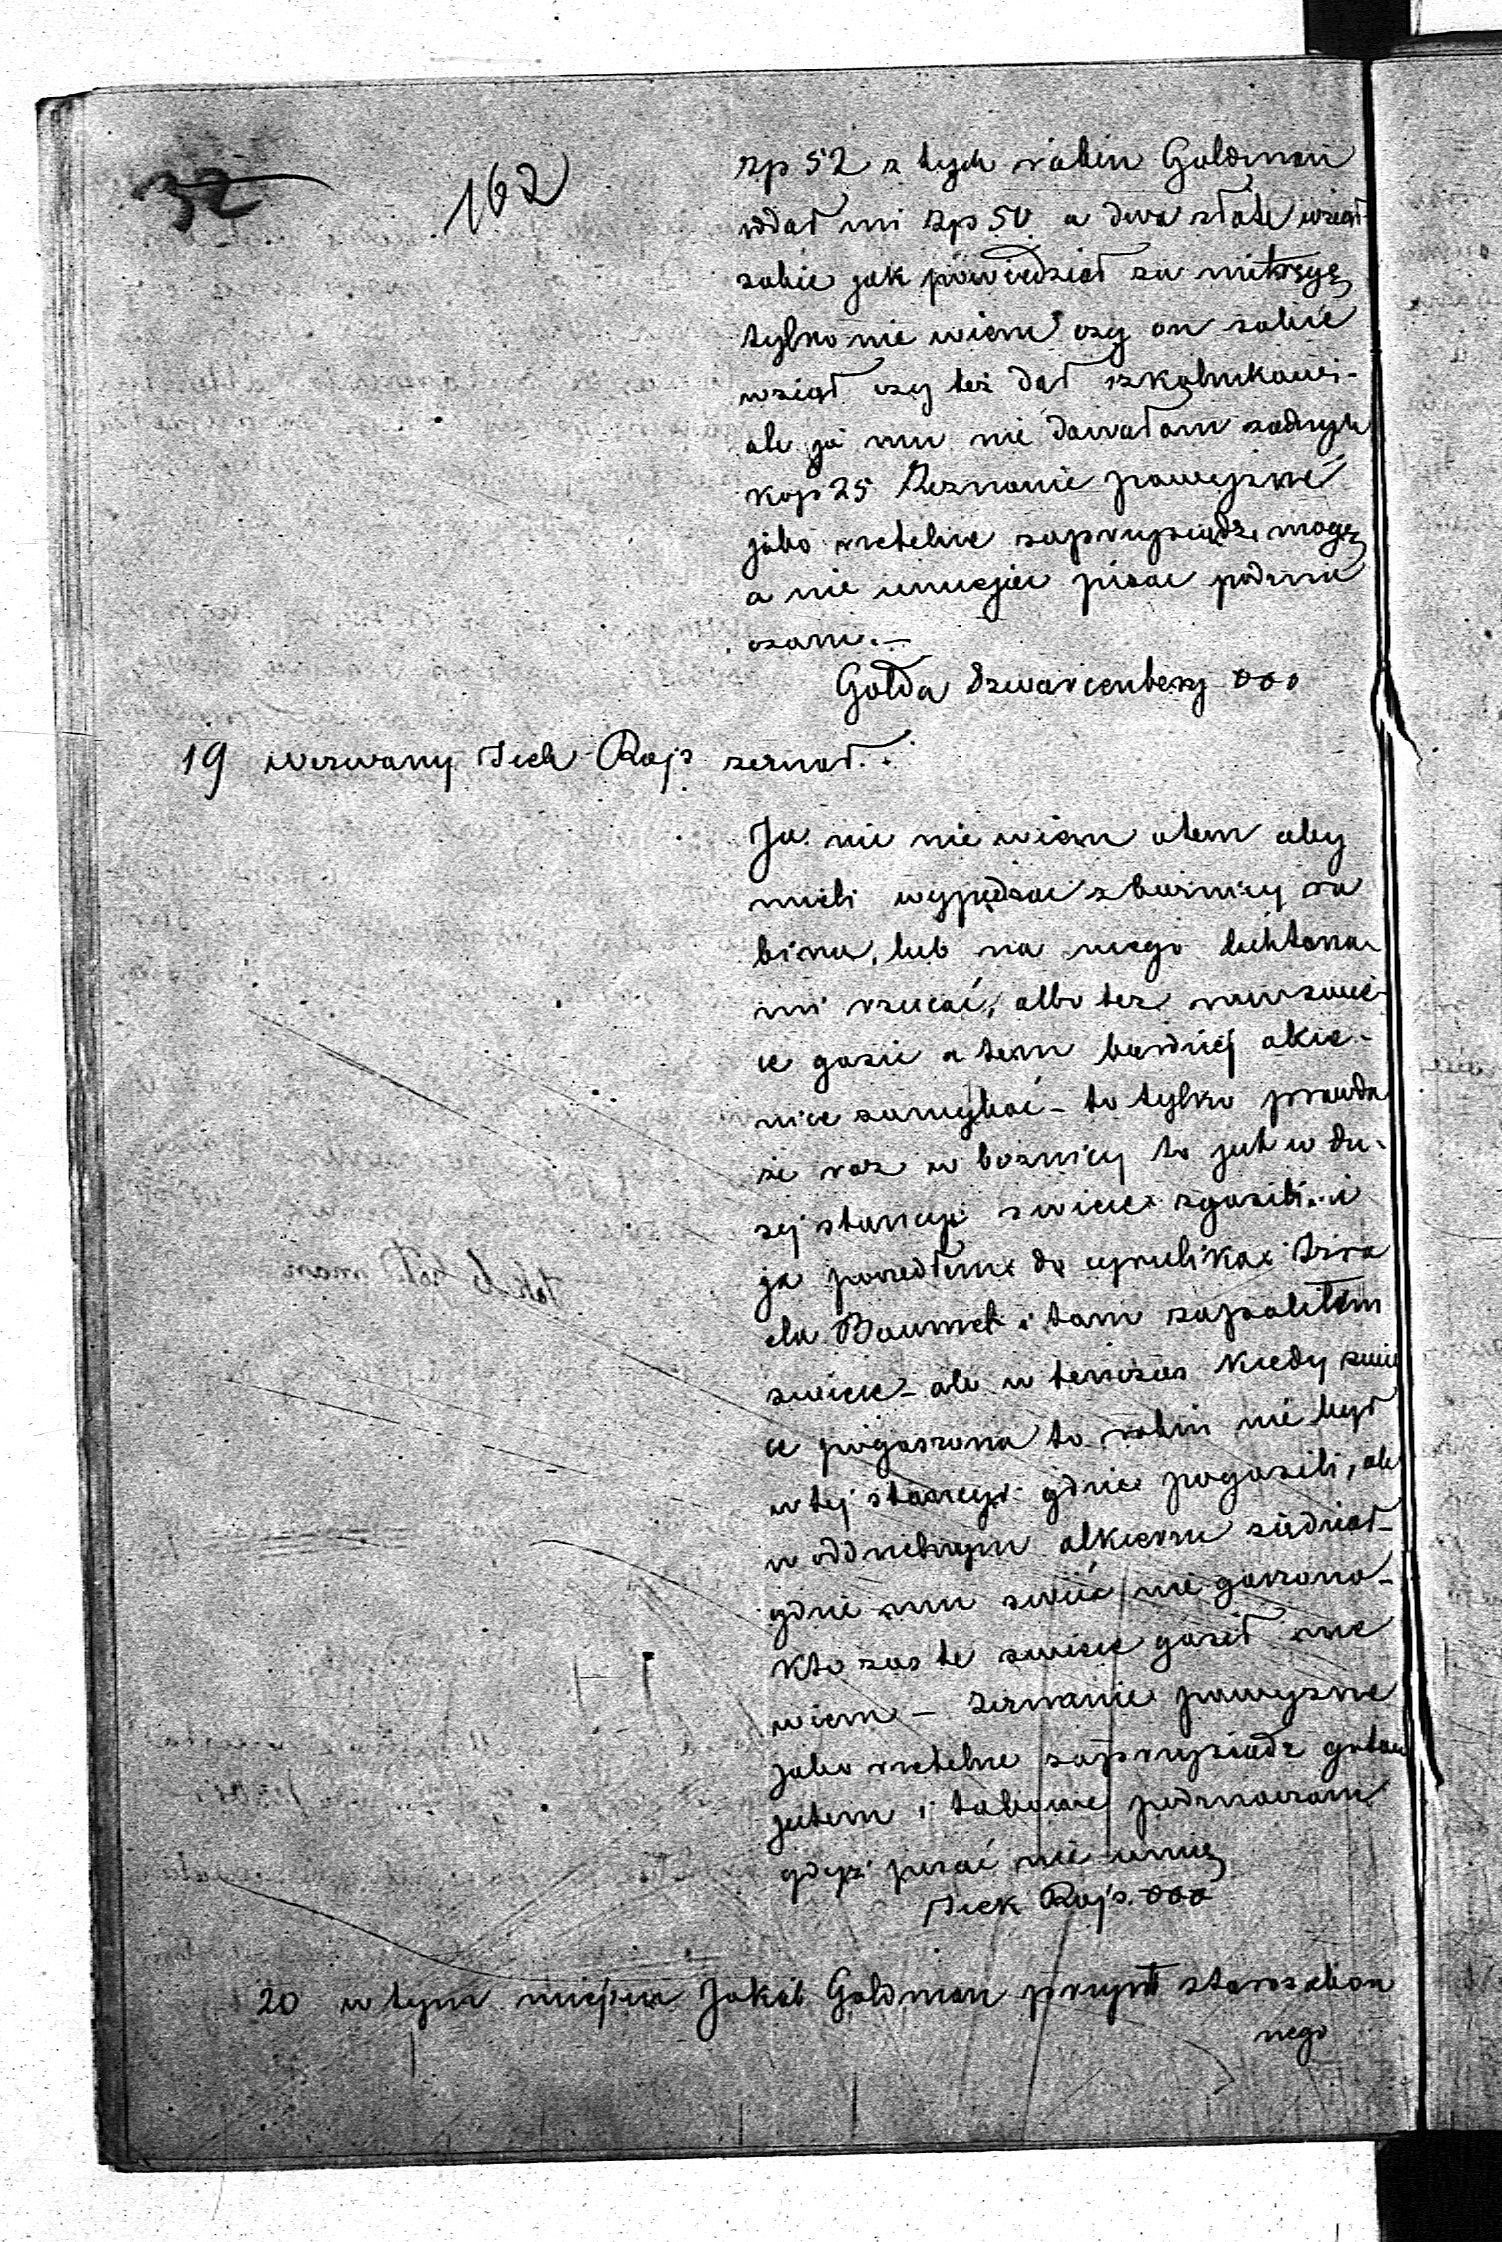 32 162
zp 52 z tych rabin Goldman
oddał mi zp 50 a dwa złote wziął
sobie jak powiedział za mitręgę
tylko nie wiem czy on sobie
wziął czy też dał szkolnikowi -
ale ja mu nie dawałam żadnych
kop 25 Zeznanie powyższe
jako rzetelne zaprzysiądz mogę
a nie umiejąc pisać podzna
czam. -
Gołda Szwarcenberg ooo
19 Wezwany Icek Rajs zeznał:
Ja nic nie wiem otem aby
mieli wypędzać z bużnicy ra
bina, lub na niego lichtara
mi rzucać, albo tez namświe
ce gasić a tem bardziej okie-
nice zamykać - to tylko prawda
że raz w boznicy to jest w du-
żej stancyi swiece zgasili i
ja poszedłem do cyrulika Izra
ela Baumel i tam zapaliłem
swiece - ale w tenczas kiedy swie
ce pogaszono to rabin nie był
w tej stancyi gdzie pogasili, ale
w oddzielnym alkierzu siedział -
gdzie mu swiéc nie gaszono -
Kto zas te swiece gasił nie
wiem - Zeznanie powyzsze
jako rzetelne zaprzysiądz gotów
jestem i takowe podznaczam
gdyż pisać nie umię
Icek Rajs. ooo
20 w tym miejscu Jakób Goldman przy starozakon
nego